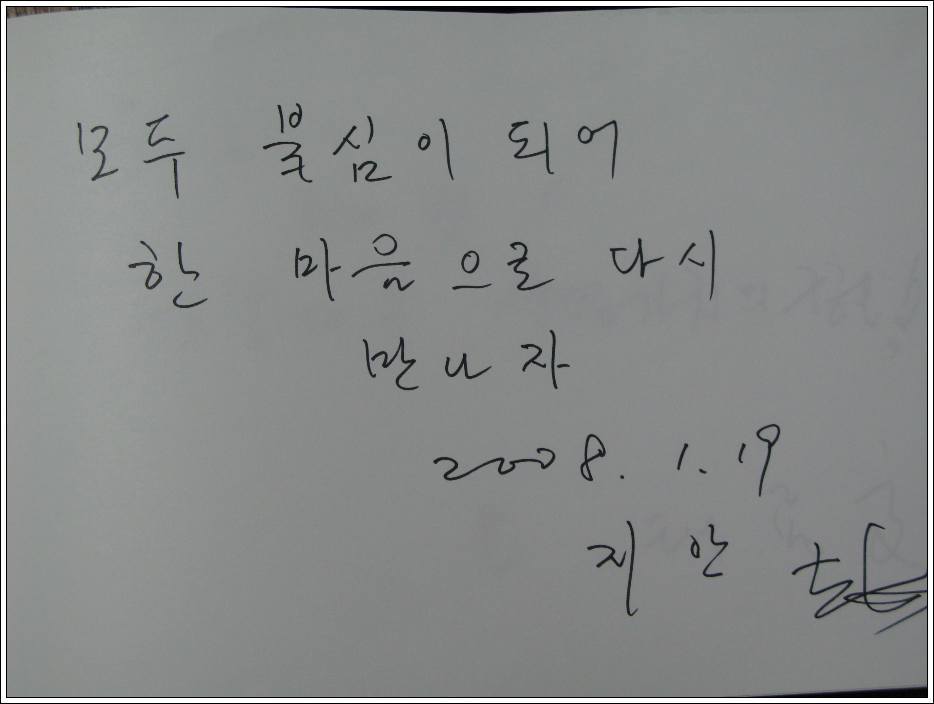 모두 불심이 되어
한 마음으로 다시
만나자
2008. 1. 19
지안